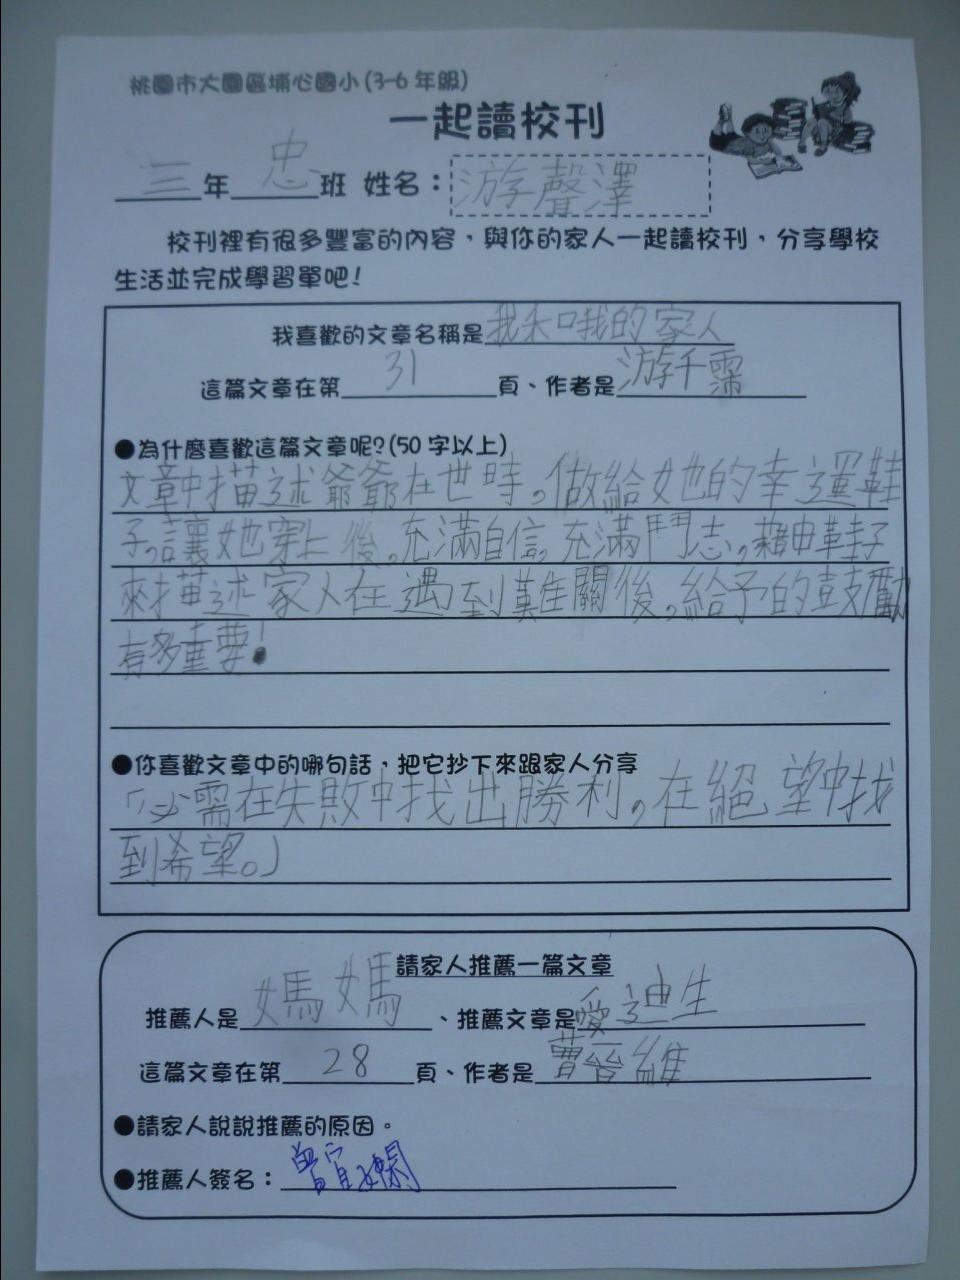 桃園市大園區埔心國小(3-6 年級)
一起讀校刊
三年忠班 姓名：游聲澤
校刊裡有很多豐富的內容，與你的家人一起讀校刊，分享學校
生活並完成學習單吧！
我喜歡的文章名稱是我禾口哦的家人
這篇文章在第31頁、作者是游千霈
●為什麼喜歡這篇文章呢?(50 字以上)
文章中描述爺爺在世時，做給她的幸運鞋
子，讓她穿上後，充滿自信，充滿鬥志，藉由鞋子
來描述家人在遇到難關後，給予的鼓勵
有多重要！
●你喜歡文章中的哪句話，把它抄下來跟家人分享
「必需在失敗中找出勝利，在絕望中找
到希望。」
請家人推薦一篇文章
推薦人是媽媽、推薦文章是愛迪生
這篇文章在第28頁、作者是曹晉維
●請家人說說推薦的原因。
●推薦人簽名：曾宜嫻